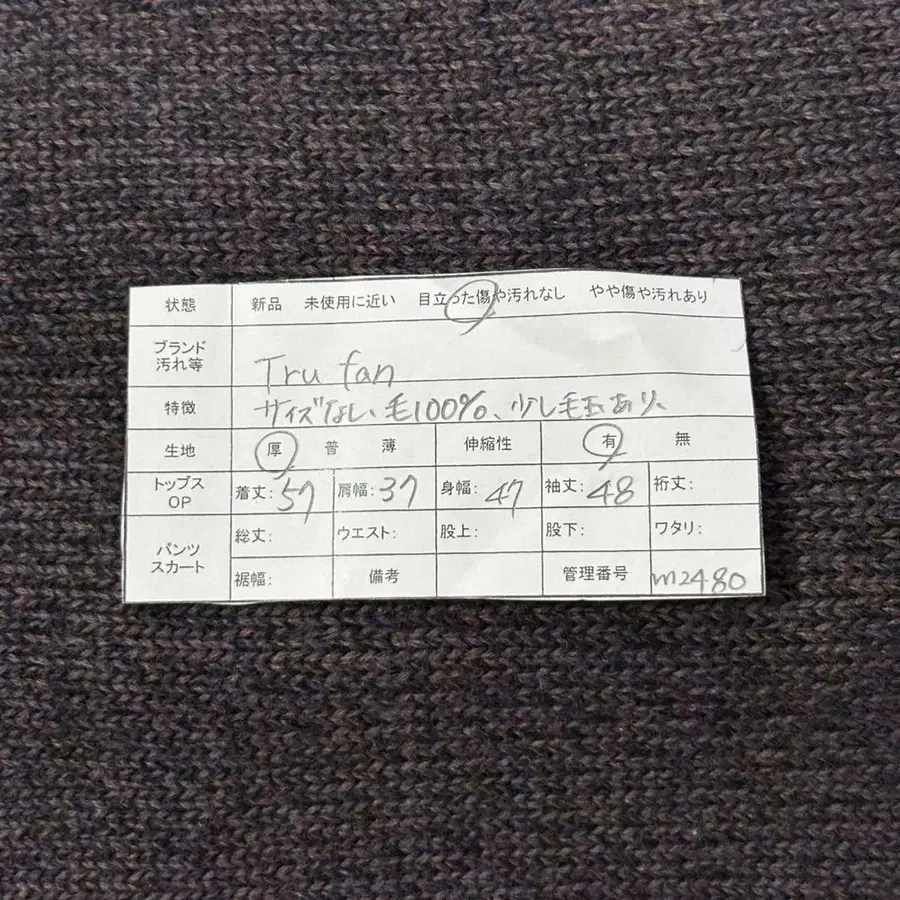 状態 新品 未使用に近い 目立った傷や汚れなし やや傷や汚れあり
ブランド
汚れ等
Tru fan
特徴 サイズなし、毛100%、少し毛玉あり、
生地 厚 普 薄 伸縮性 有 無
トップス
OP
着丈: 57 肩幅: 37 身幅: 47 袖丈: 48 裄丈:
パンツ
スカート
総丈: ウエスト: 股上: 股下: ワタリ:
裾幅: 備考 管理番号 m2480